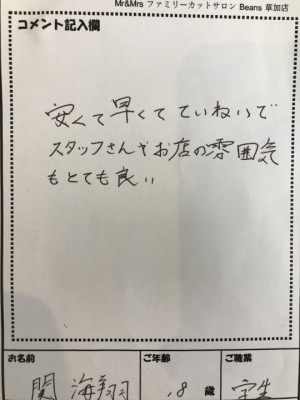 Mr&Mrs ファミリーカットサロン Beans 草加店
コメント記入欄
安くて早くてていねいで
スタッフさんやお店の雰囲気
もとても良い
お名前
ご年齢
ご職業
関 海翔
18 歳
学生